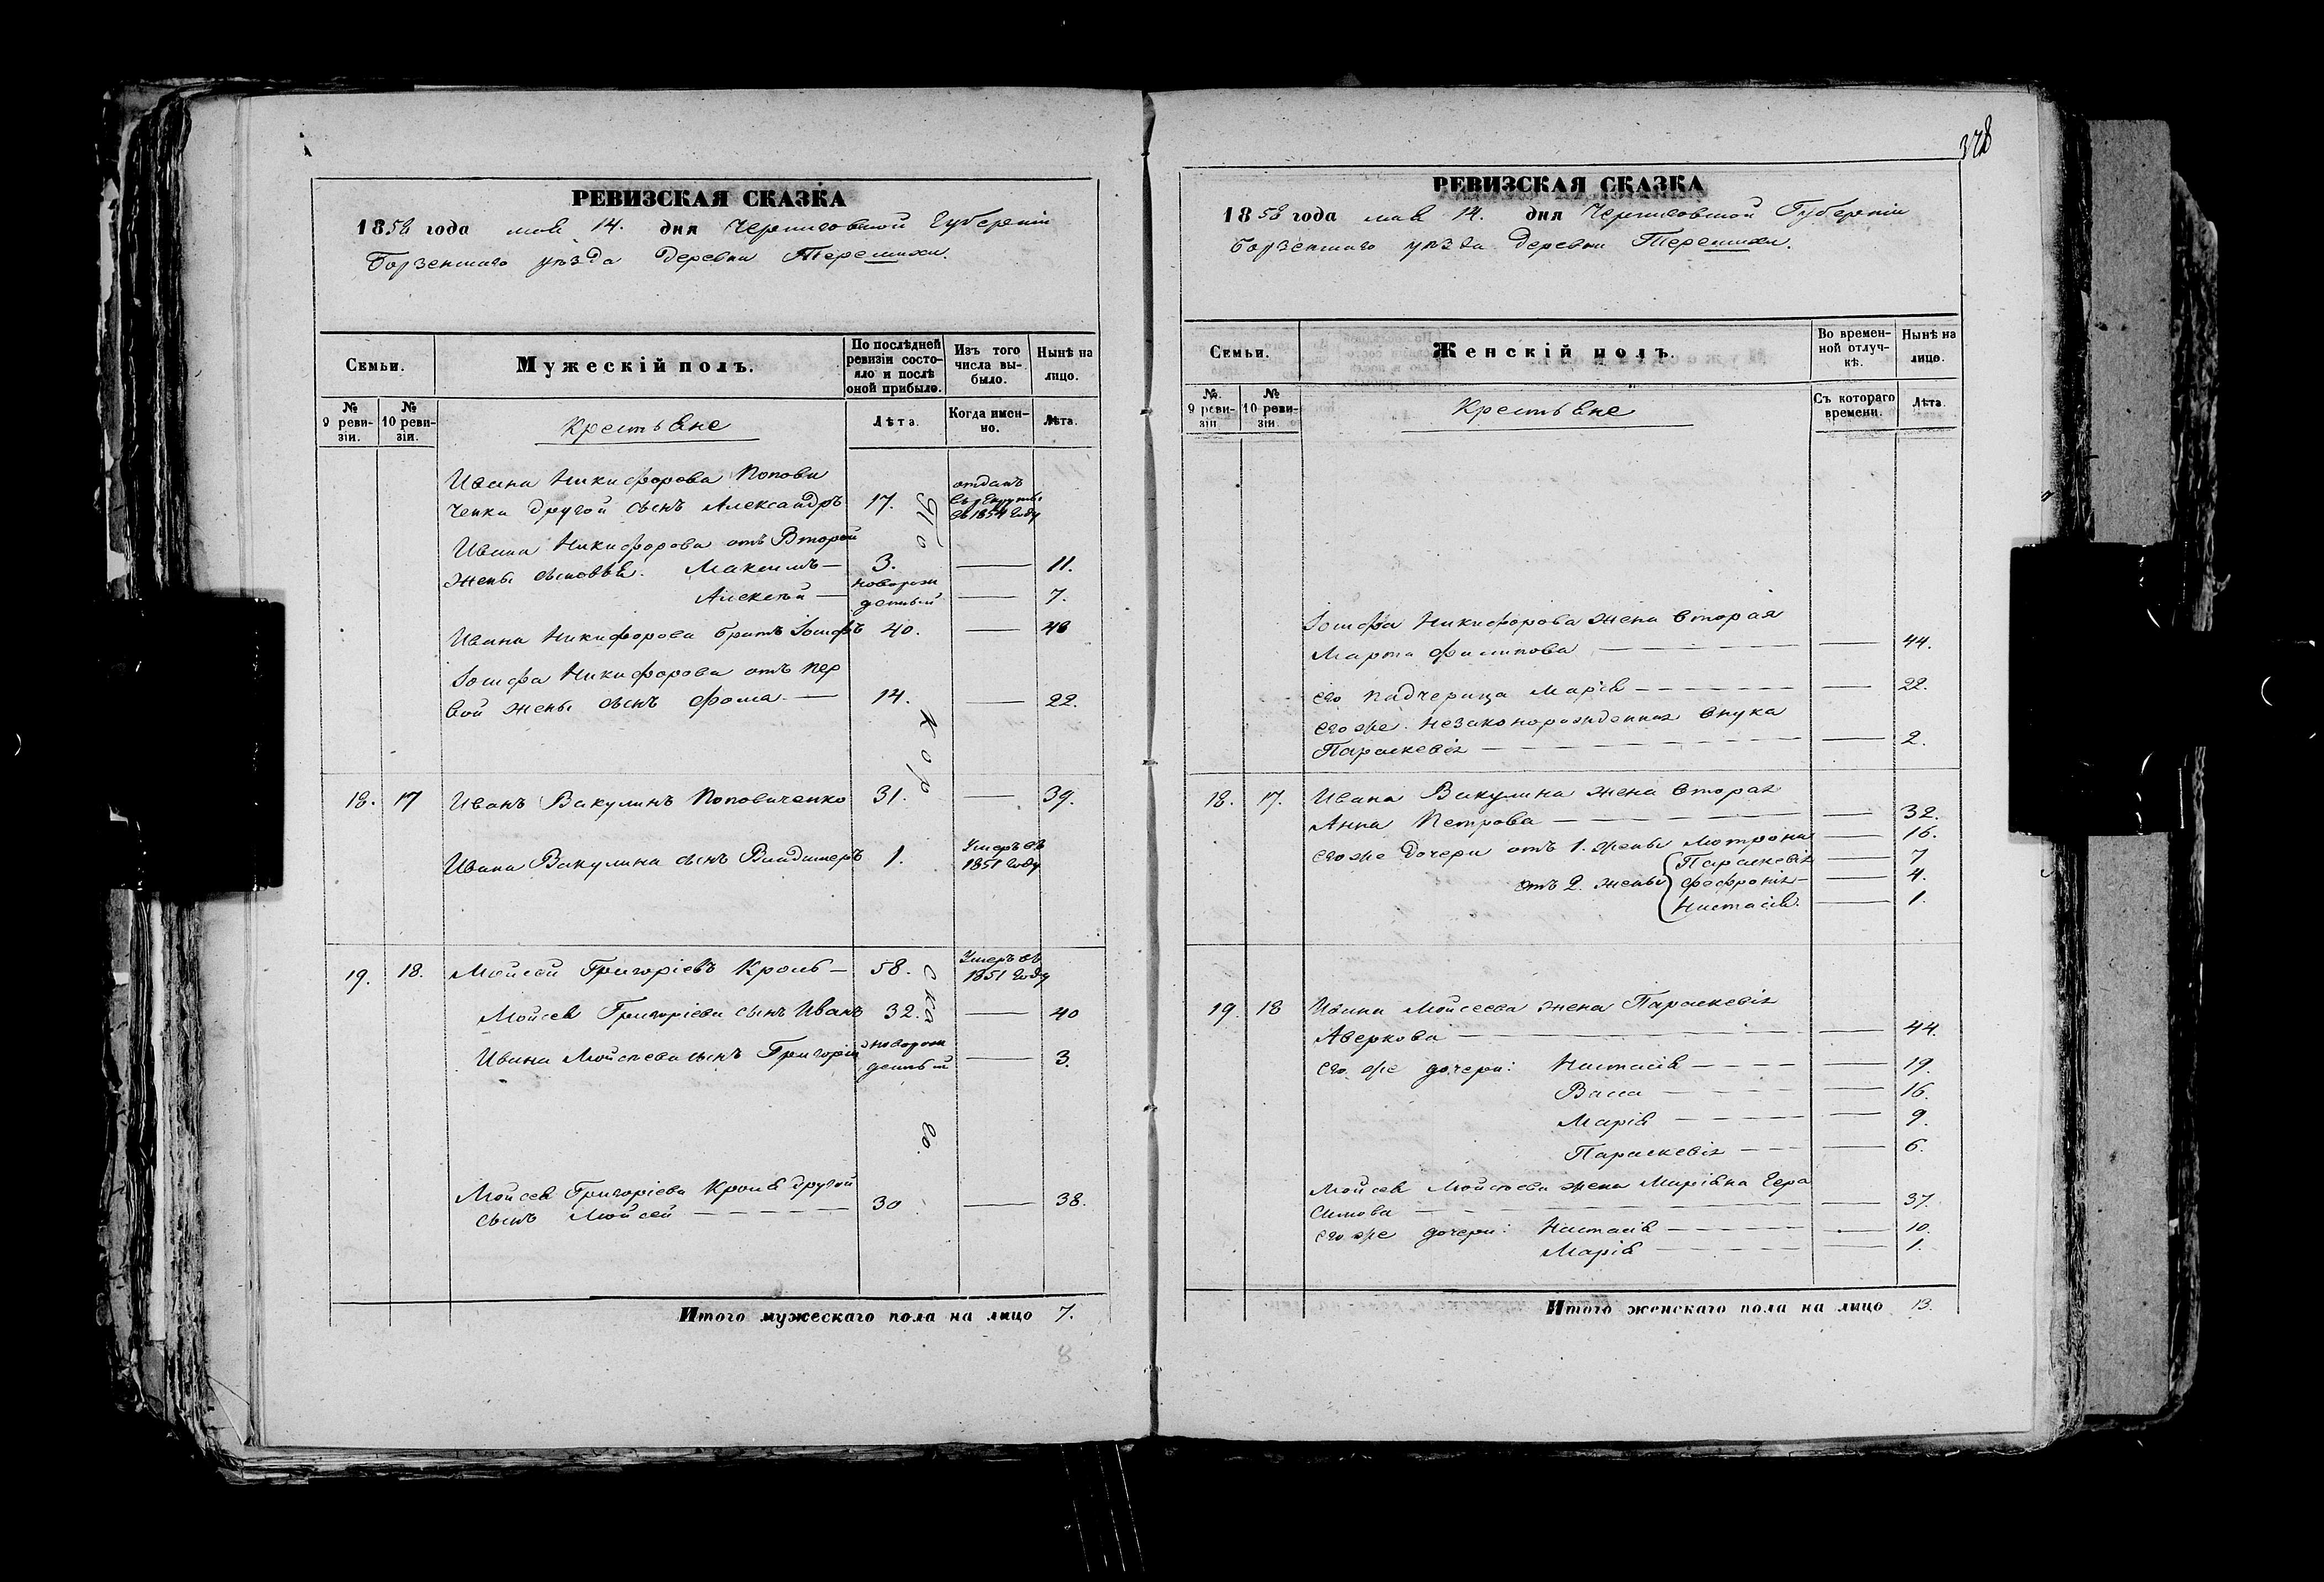 РЕВИЗСКАЯ СКАЗКА
1858 года мая 14. дня Черниговской Губерніи
Борзенскаго уѣзда деревни Терешихи.
Семьи.
Мужескій полъ.
По послѣдней ревизіи состояло и послѣ оной прибыло.
Изъ того числа выбыло.
Нынѣ на лицо.
№ 9 ревизіи.
№ 10 ревизіи.
Крестьяне
Лѣта.
Когда именно.
Лѣта.
Ивана Никифорова Попови
ченка другой сынъ Александръ 17. отданъ въ рекруты въ 1854 году
Ивана Никифорова отъ Второй
жены сыновья. Максимъ — 3. — 11.
Алексѣй — новорожденный — 7.
Ивана Никифорова братъ Іосифъ 40. — 48
Іосифа Никифорова отъ пер
вой жены сынъ Фома — 14. — 22.
18. 17 Иванъ Вакулинъ Поповиченко 31. — 39.
Ивана Вакулина сынъ Владимеръ 1. Умеръ въ 1851 году
19. 18. Мойсей Григоріевъ Кроль — 58. Умеръ въ 1851 году
Мойсея Григоріева сынъ Иванъ 32. — 40
Ивана Мойсеева сынъ Григорій новорожденный — 3.
Мойсея Григоріева Кроля другой
сынъ Мойсей — 30 — 38.
Итого мужескаго пола на лицо 7.
8
378
РЕВИЗСКАЯ СКАЗКА
1858 года мая 14. дня Черниговской Губерніи
Борзенскаго уѣзда деревни Терешихи.
Семьи.
Женскій полъ.
Во временной отлучкѣ.
Нынѣ на лицо.
№ 9 ревизіи
№ 10 ревизіи
Крестьяне
Съ котораго времени.
Лѣта.
Іосифа Никифорова жена вторая
Марта Филипова — — 44.
его падчерица Марія — — 22.
его же незаконорожденная внука
Параскевія — — 2.
18. 17. Ивана Вакулина жена вторая
Анна Петрова — — 32.
его же дочери отъ 1. жены Мотрона — 16.
Параскевія — 7
отъ 2. жены Фефронія — 4.
Настасія. — 1.
19. 18 Ивана Мойсеева жена Параскевія
Аверкова — — 44.
его же дочери: Настасія — — 19.
Васса — — 16.
Марія — — 9.
Параскевія — — 6.
Мойсея Мойсеева жена Маріяна Гера
симова — — 37.
его же дочери: Настасія — — 10.
Марія — — 1.
Итого женскаго пола на лицо 13.